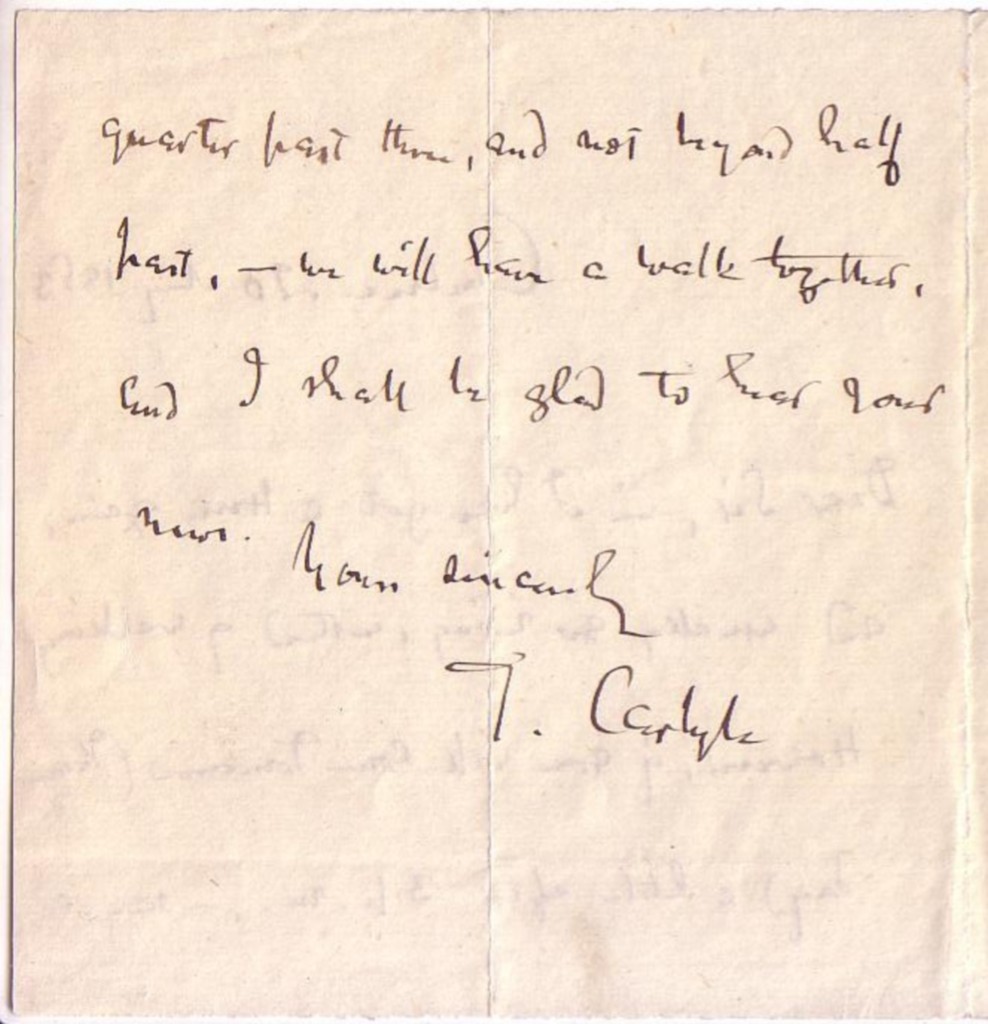 quarter past three, and not beyond half
past, — we will have a walk together,
and I shall be glad to hear your
news.
Yours sincerely
T. Carlyle